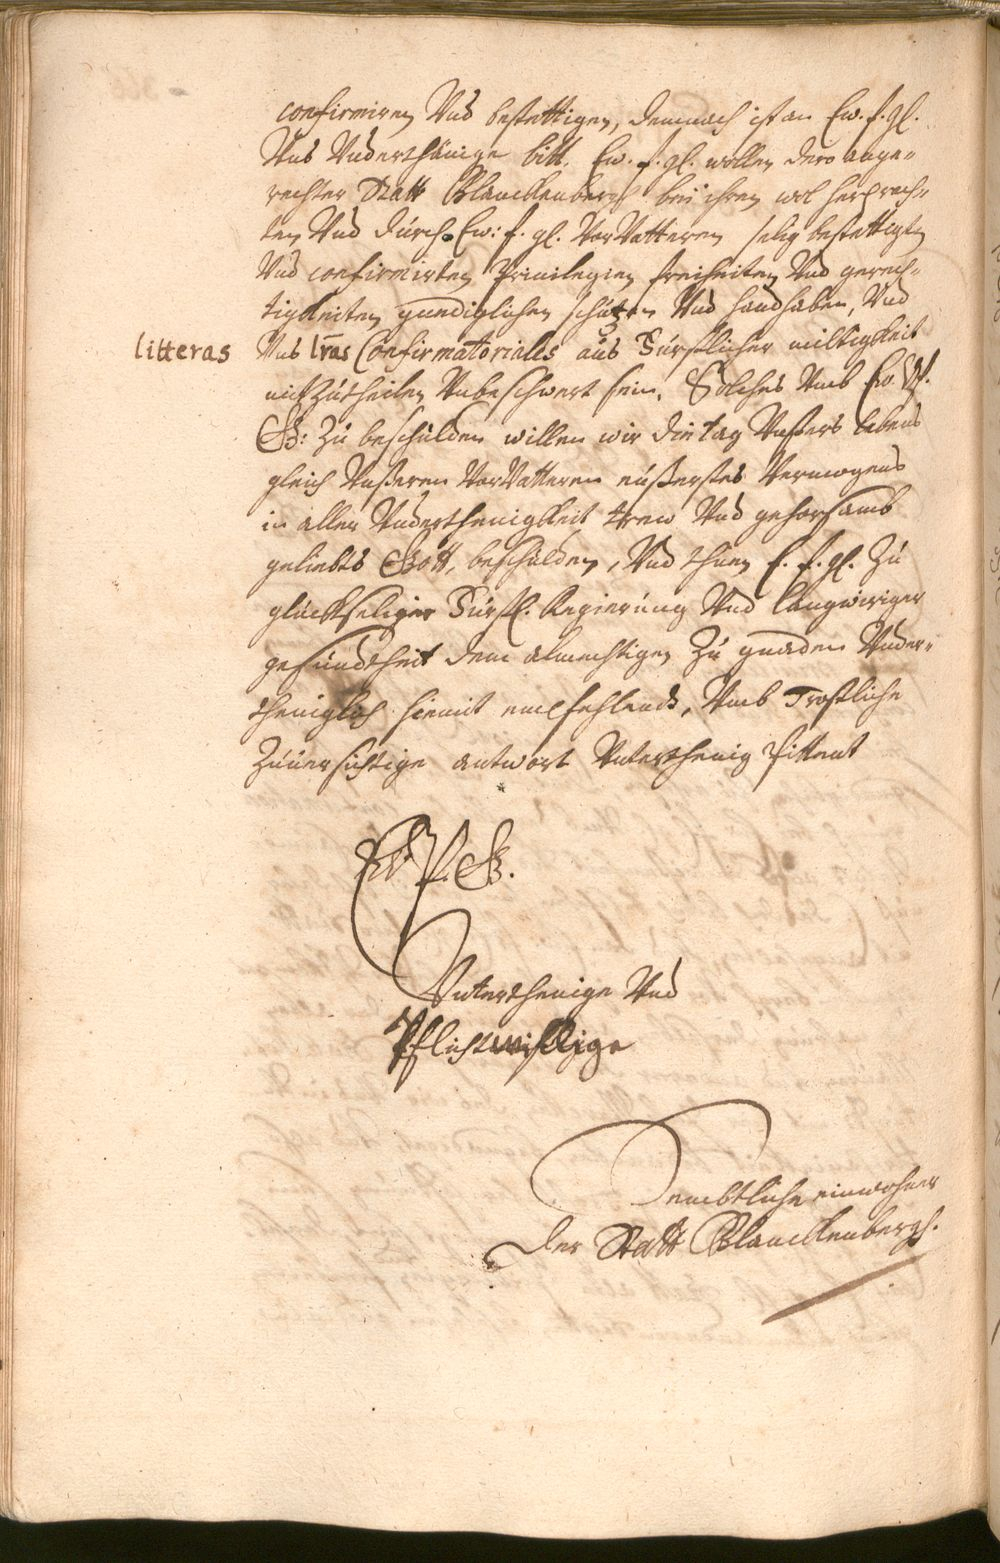 confirmiren Vnd bestettigen, demnach ist an Ew. f. gl.
Vns Vnderthänige bitt. Ew. f. gl. wollen dero ange=
rechter Statt Blanckenbergh bei ihren wol herprach=
ten Vnd durch Ew: f. gl. VorVatteren selig bestettigten
Vnd confirmirten Privilegien freiheiten Vnd gerech=
tigkeiten gnediglichen schützen Vnd handhaben, Vnd
litteras
Vns lras Confirmatoriales aus Fürstlicher miltigkeit
mitzutheilen Vnbeschwert sein. Solches Vmb Ew. f.
G: Zu beschulden willen wir die tag Vnsers lebens
gleich Vnseren VorVatteren eußerstes Vermogens
in aller Vnderthenigkeit trew Vnd gehorsamb
geliebts Gott, beschulden, Vnd thuen E. f. gl. Zu
glückseliger Fürstl. Regierung Vnd langwiriger
gesundtheit dem almechtigen Zu gnaden Vnder=
theniglich hiemit empfehlend, Vmb Trostliche
Zuuersichtige antwort Vnterthenig bittent
Ew. f. G.
Vnterthenige Vnd
Pflichtwillige
Sembtliche einwohner
der Statt Blanckenbergh.